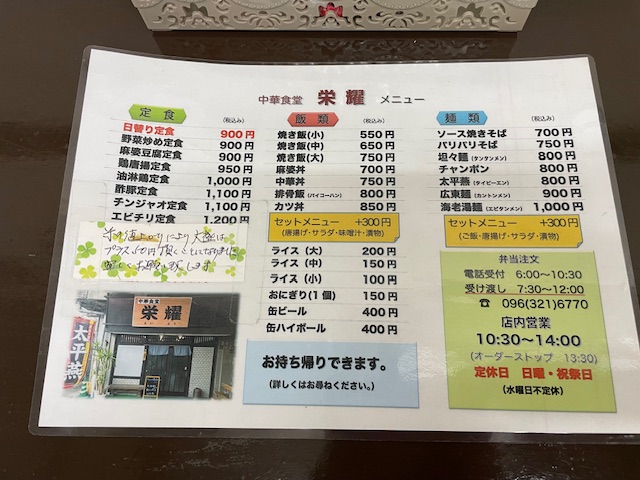 中華食堂 栄耀 メニュー
定食 (税込み)
日替り定食 900円
野菜炒め定食 900円
麻婆豆腐定食 900円
鶏唐揚定食 950円
油淋鶏定食 1,000円
酢豚定食 1,100円
チンジャオ定食 1,100円
エビチリ定食 1,200円
プラス50円頂くことといたしました
宜しくお願い致します
中華食堂
栄耀
太平燕
飯類 (税込み)
焼き飯(小) 550円
焼き飯(中) 650円
焼き飯(大) 750円
麻婆丼 700円
中華丼 750円
排骨飯(パイコーハン) 800円
カツ丼 850円
セットメニュー +300円
(唐揚げ・サラダ・味噌汁・漬物)
ライス (大) 200円
ライス (中) 150円
ライス (小) 100円
おにぎり(1個) 150円
缶ビール 400円
缶ハイボール 400円
お持ち帰りできます。
(詳しくはお尋ねください。)
麺類 (税込み)
ソース焼きそば 700円
パリパリそば 750円
坦々麺(タンタンメン) 800円
チャンポン 800円
太平燕(タイピーエン) 800円
広東麺(カントンメン) 900円
海老湯麺(エビタンメン) 1,000円
セットメニュー +300円
(ご飯・唐揚げ・サラダ・漬物)
弁当注文
電話受付 6:00~10:30
受け渡し 7:30~12:00
☎ 096(321)6770
店内営業
10:30~14:00
(オーダーストップ 13:30)
定休日 日曜・祝祭日
(水曜日不定休)